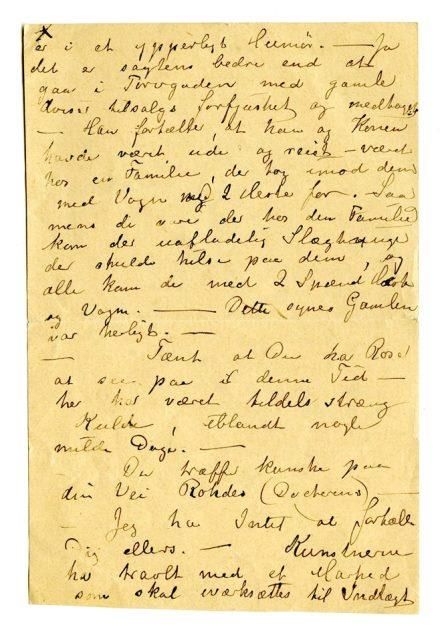 er i et ypperligt Humør. — Ja
det er sagtens bedre end at
gaa i Torvgaden med gamle
Aviser tilsalgs forfjasket og medtaget
— Han fortalte, at han og Konen
havde været ude og reist — været
hos en Familie, der tog imod dem
med Vogn med 2 Heste for. Saa
mens de vare der hos den Familie
kom der uafladelig Slægtninge
de skulde hilse paa dem, og
alle kom de med 2 Spænd Heste
og Vogn. — Dette synes Gamlen
var herligt. —
— Tænk at Du har Roser
at see paa i denne Tid —
her har været tildels stræng
Kulde, iblandt nogle
milde Dage. —
— Du træffer kanske paa
din Vei Rohdes (Doctorens) —
— Jeg har Intet at fortælle
Dig ellers. — Kunstnerne
har travlt med et Marked
som skal iværksættes til Indtægt